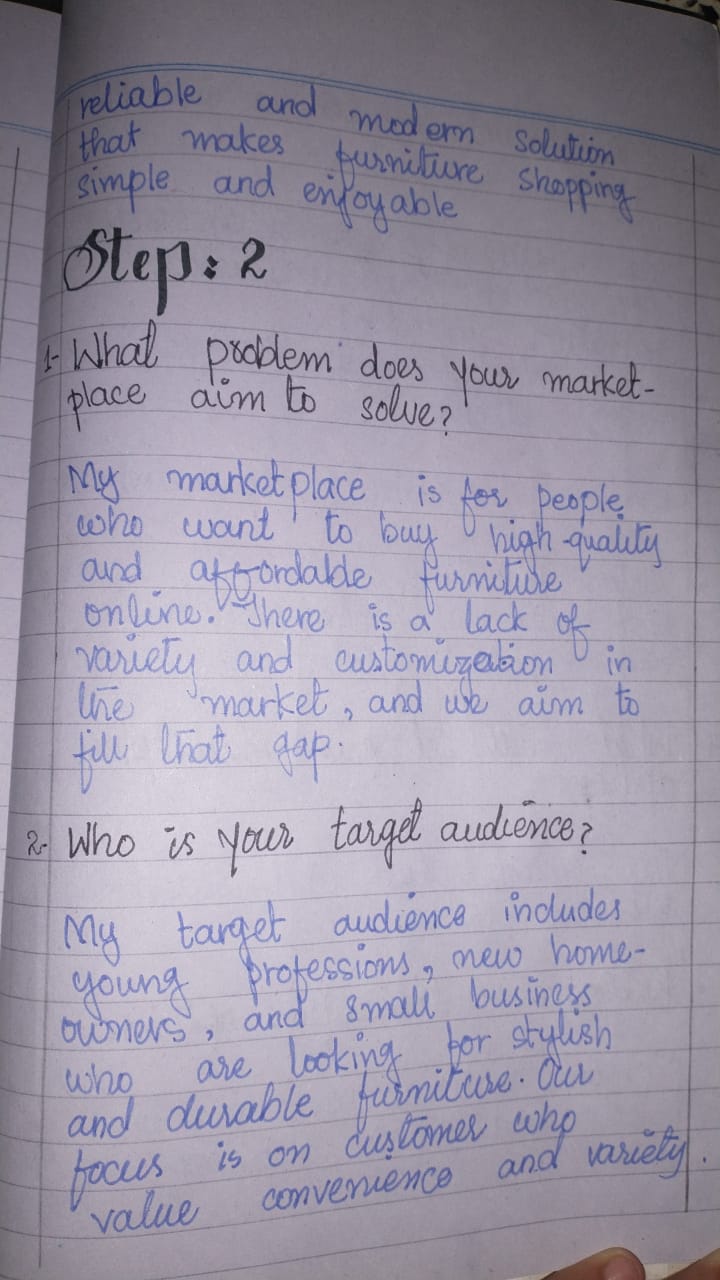 reliable and modern solution
that makes furniture shopping
simple and enjoyable
Step: 2
1- What problem does your market-
place aim to solve?
My marketplace is for people
who want to buy high-quality
and affordable furniture
online. There is a lack of
variety and customization in
the market, and we aim to
fill that gap.
2- Who is your target audience?
My target audience includes
young professions, new home-
owners, and small business
who are looking for stylish
and durable furniture. Our
focus is on customer who
value convenience and variety.